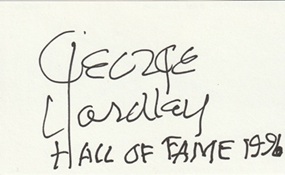 GEORGE
Yardley
HALL OF FAME 1996